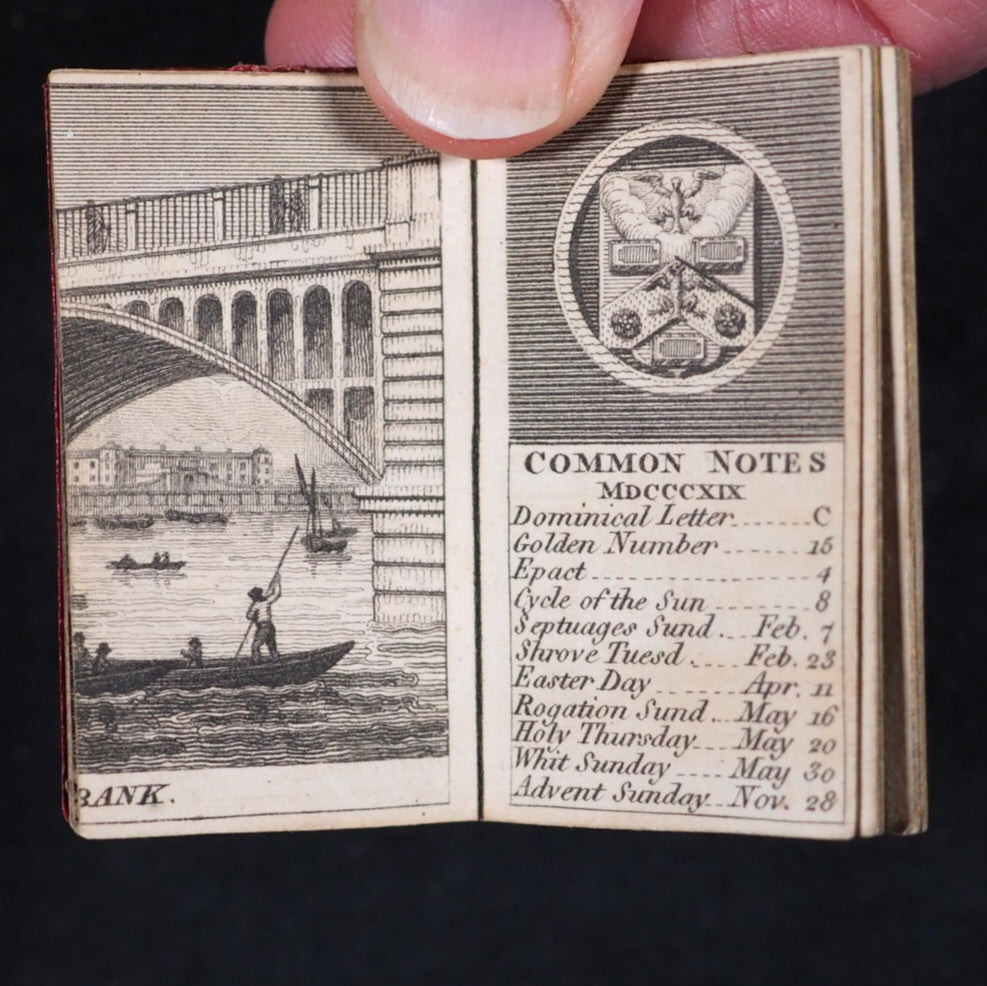 BANK.
COMMON NOTES
MDCCCXIX
Dominical Letter.......C
Golden Number ...... 15
Epact .................. 4
Cycle of the Sun ....... 8
Septuages Sund... Feb. 7
Shrove Tuesd..... Feb. 23
Easter Day ...... Apr. 11
Rogation Sund... May 16
Holy Thursday... May 20
Whit Sunday .... May 30
Advent Sunday.. Nov. 28